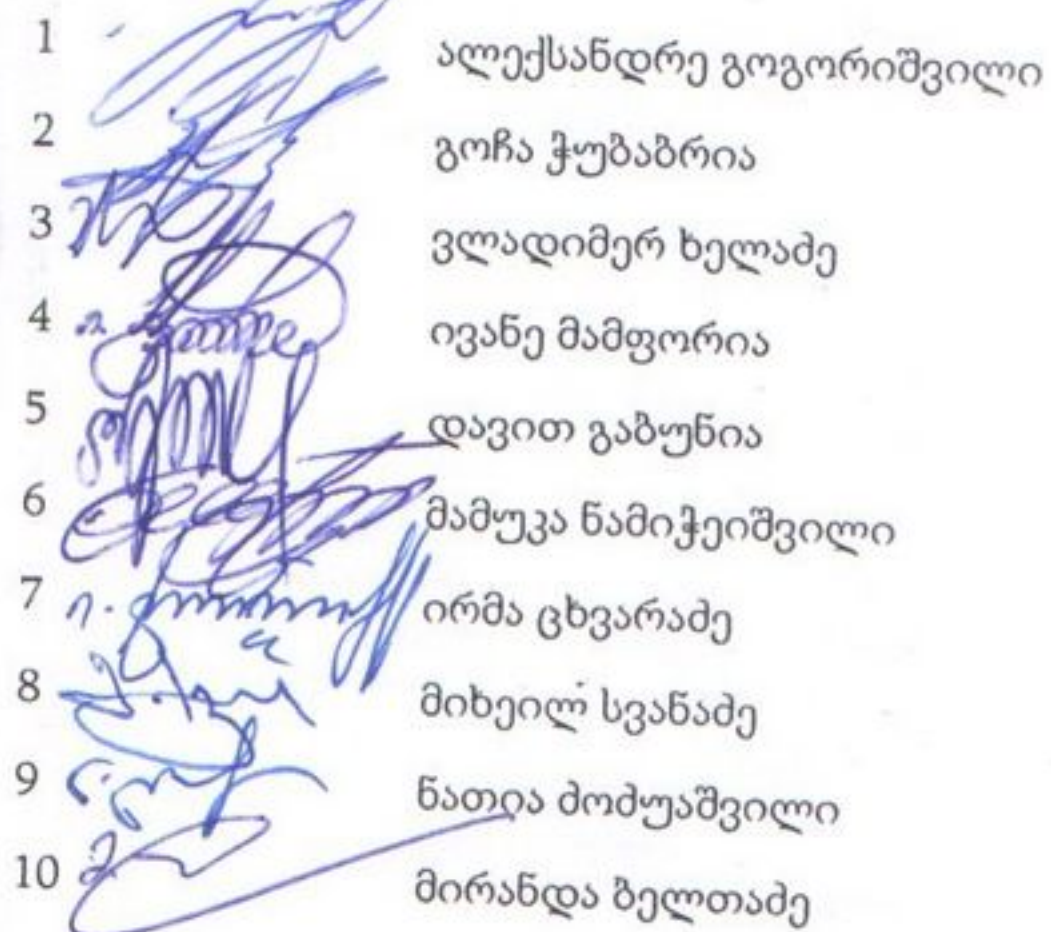 1 ალექსანდრე გოგორიშვილი
2 გოჩა ჭუბაბრია
3 ვლადიმერ ხელაძე
4 ივანე მამფორია
5 დავით გაბუნია
6 მამუკა ნამიჭეიშვილი
7 ირმა ცხვარაძე
8 მიხეილ სვანაძე
9 ნათია ძოძუაშვილი
10 მირანდა ბელთაძე